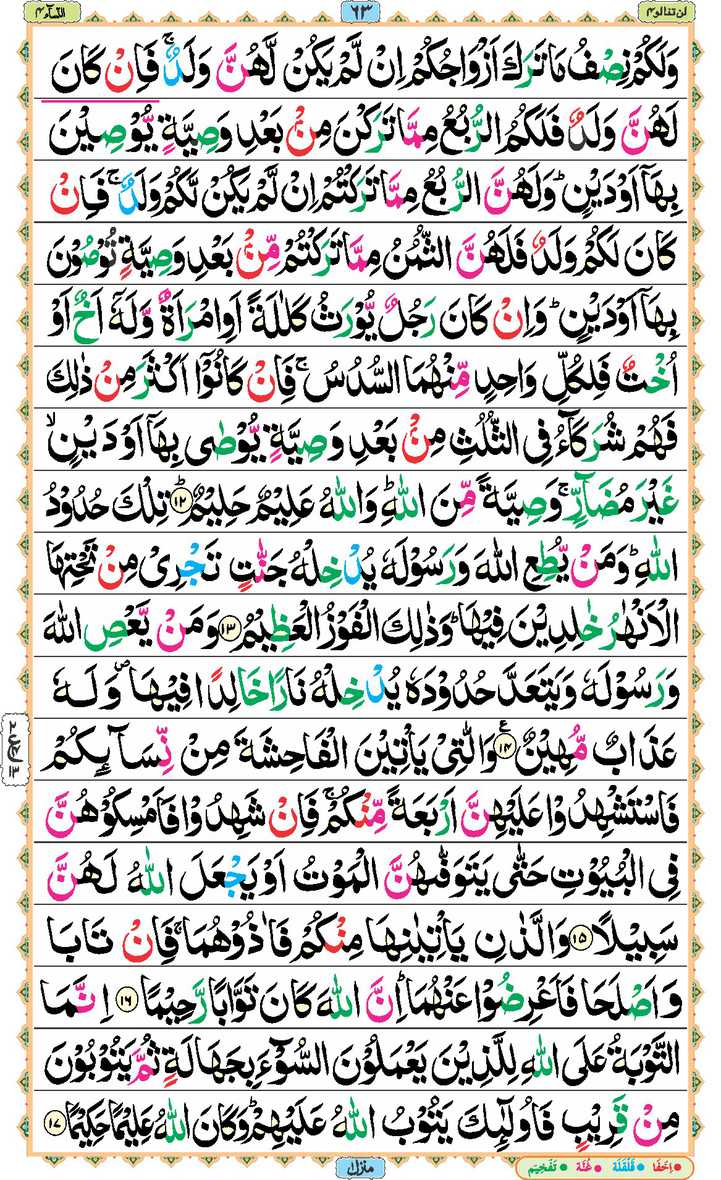 لن تنالوا ٤ ٦٣ النسآء ٤
وَلَكُمْ نِصْفُ مَا تَرَكَ اَزْوَاجُكُمْ اِنْ لَّمْ يَكُنْ لَّهُنَّ وَلَدٌ ۚ فَاِنْ كَانَ
لَهُنَّ وَلَدٌ فَلَكُمُ الرُّبُعُ مِمَّا تَرَكْنَ مِنْۢ بَعْدِ وَصِيَّةٍ يُّوْصِيْنَ
بِهَاۤ اَوْ دَيْنٍ ؕ وَلَهُنَّ الرُّبُعُ مِمَّا تَرَكْتُمْ اِنْ لَّمْ يَكُنْ لَّكُمْ وَلَدٌ ۚ فَاِنْ
كَانَ لَكُمْ وَلَدٌ فَلَهُنَّ الثُّمُنُ مِمَّا تَرَكْتُمْ مِّنْۢ بَعْدِ وَصِيَّةٍ تُوْصُوْنَ
بِهَاۤ اَوْ دَيْنٍ ؕ وَاِنْ كَانَ رَجُلٌ يُّوْرَثُ كَلٰلَةً اَوِ امْرَاَةٌ وَّلَهٗۤ اَخٌ اَوْ
اُخْتٌ فَلِكُلِّ وَاحِدٍ مِّنْهُمَا السُّدُسُ ۚ فَاِنْ كَانُوْۤا اَكْثَرَ مِنْ ذٰلِكَ
فَهُمْ شُرَكَآءُ فِى الثُّلُثِ مِنْۢ بَعْدِ وَصِيَّةٍ يُّوْصٰى بِهَاۤ اَوْ دَيْنٍ ۙ
غَيْرَ مُضَآرٍّ ۚ وَصِيَّةً مِّنَ اللّٰهِ ؕ وَاللّٰهُ عَلِيْمٌ حَلِيْمٌ ؕ ۱۲ تِلْكَ حُدُوْدُ
اللّٰهِ ؕ وَمَنْ يُّطِعِ اللّٰهَ وَرَسُوْلَهٗ يُدْخِلْهُ جَنّٰتٍ تَجْرِىْ مِنْ تَحْتِهَا
الْاَنْهٰرُ خٰلِدِيْنَ فِيْهَا ؕ وَذٰلِكَ الْفَوْزُ الْعَظِيْمُ ۱۳ وَمَنْ يَّعْصِ اللّٰهَ
وَرَسُوْلَهٗ وَيَتَعَدَّ حُدُوْدَهٗ يُدْخِلْهُ نَارًا خَالِدًا فِيْهَا ۪ وَلَهٗ
عَذَابٌ مُّهِيْنٌ ۱۴ ع وَالّٰتِىْ يَاْتِيْنَ الْفَاحِشَةَ مِنْ نِّسَآئِكُمْ
فَاسْتَشْهِدُوْا عَلَيْهِنَّ اَرْبَعَةً مِّنْكُمْ ۚ فَاِنْ شَهِدُوْا فَاَمْسِكُوْهُنَّ
فِى الْبُيُوْتِ حَتّٰى يَتَوَفّٰهُنَّ الْمَوْتُ اَوْ يَجْعَلَ اللّٰهُ لَهُنَّ
سَبِيْلًا ۱۵ وَالَّذٰنِ يَاْتِيٰنِهَا مِنْكُمْ فَاٰذُوْهُمَا ۚ فَاِنْ تَابَا
وَاَصْلَحَا فَاَعْرِضُوْا عَنْهُمَا ؕ اِنَّ اللّٰهَ كَانَ تَوَّابًا رَّحِيْمًا ۱۶ اِنَّمَا
التَّوْبَةُ عَلَى اللّٰهِ لِلَّذِيْنَ يَعْمَلُوْنَ السُّوْٓءَ بِجَهَالَةٍ ثُمَّ يَتُوْبُوْنَ
مِنْ قَرِيْبٍ فَاُولٰٓئِكَ يَتُوْبُ اللّٰهُ عَلَيْهِمْ ؕ وَكَانَ اللّٰهُ عَلِيْمًا حَكِيْمًا ۱۷
منزل ۱ اِخْفَا قَلْقَلَة غُنَّه تَفْخِيْم